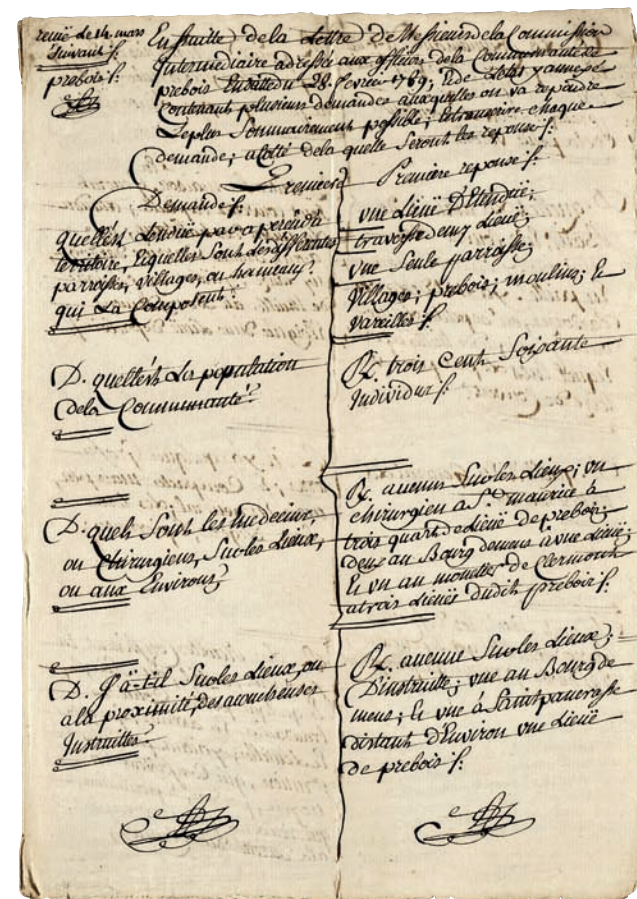 reçuë de 14 mars
suivant f.
prebois f.
En suitte de la Lettre de Messieurs de la Commission
Intermediaire adressée aux officiers de la Communauté de
prebois En datte du 28. fevrier 1789; et de L'etat y annexé
Contenant plusieurs demandes auxquelles on va repondre
Le plus Sommairement possible; et transcrire chaque
demande; a Cotté de la quelle Seront les reponse f.
Premiere
Demande f.
quelle est L'etenduë
territoire, et quelles Sont Les differentes
parroisses, villages, ou hameaux
qui La Composent?
D. quelle est La population
de la Communauté?
D. quels Sont les medecins,
ou Chirurgiens, Sur les Lieux,
ou aux Environs?
D. Y a-t-il Sur les Lieux, ou
a la proximité, des accoucheuses
Instruittes?
Premiere reponse f.
une Lieuë D'Etenduë;
traverse demy Lieuë;
une Seule parroisse;
villages; prebois; moulins; et
vareilles f.
R. trois Cent Soixante
Individus f.
R. aucuns Sur les Lieux; un
chirurgien a St. maurice à
trois quart de Lieuë de prebois;
deux au Bourg de mens à une Lieuë;
et un au de Clermont
a trois Lieuës dudit prebois f.
R. aucune Sur les Lieux;
D'instruitte; une au Bourg de
mens; et une à Saint pancrasse
distant D'Environ une Lieuë
de prebois f.